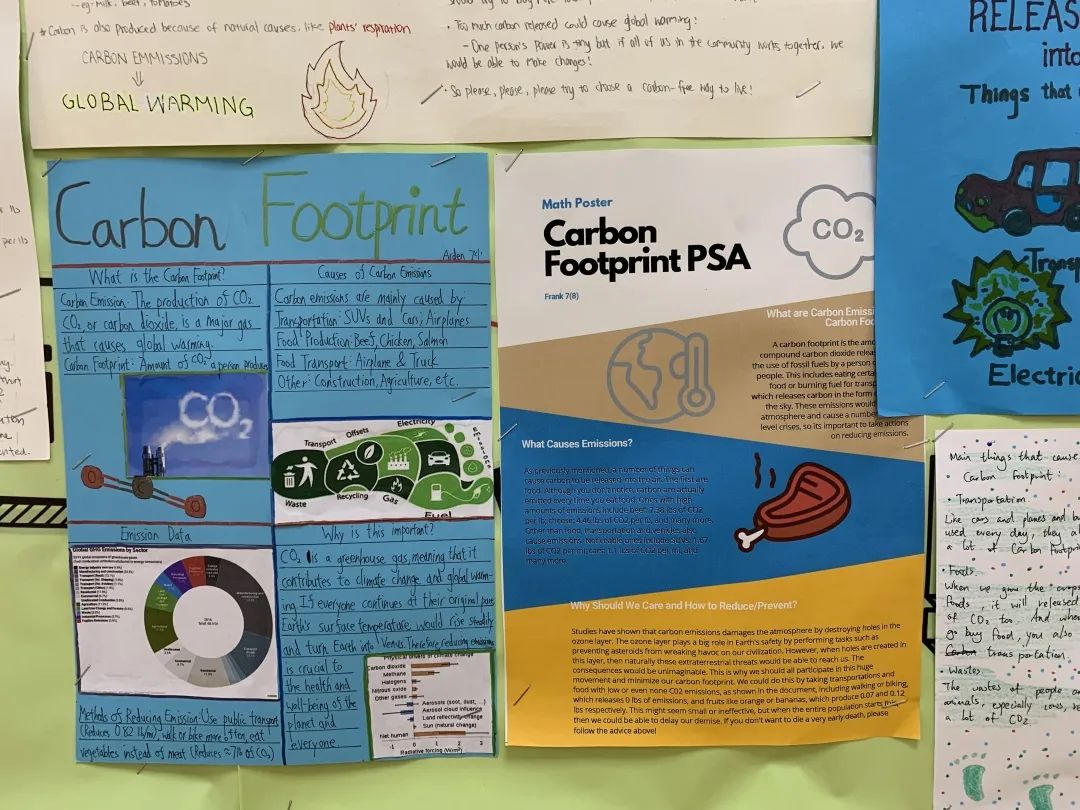 --eg. milk, beef, tomatoes
* Carbon is also produced because of natural causes, like plants' respiration
CARBON EMMISSIONS
GLOBAL WARMING
· Too much carbon released could cause global warming!
- One person's power is tiny but if all of us in the community works together, we
would be able to make changes!
· So please, please, please try to choose a carbon-free way to live!
RELEAS
into
Things that
Transp
Electric
Carbon Footprint
Arden 7(4)
What is the Carbon Footprint?
Carbon Emission: The production of CO2.
CO2, or carbon dioxide, is a major gas
that causes global warming.
Carbon Footprint: Amount of CO2 a person produce
CO2
Causes of Carbon Emissions
Carbon emissions are mainly caused by:
Transportation: SUVs and Cars; Airplanes
Food Production: Beef, Chicken, Salmon
Food Transport: Airplane & Truck
Other: Construction, Agriculture, etc.
Transport
Offsets
Electricity
Waste
Recycling
Gas
Fuel
Emission Data
Global GHG Emissions by Sector
Why is this important?
CO2 is a greenhouse gas, meaning that it
contributes to climate change and global warm-
ing. If everyone continues at their original pace
Earth's surface temperature would rise steadily
and turn Earth into Venus. Therefore, reducing emissions
is crucial to
the health and
well-being of the
planet and
everyone
Physical drivers of climate change
Carbon dioxide
Methane
Halogens
Nitrous oxide
Other gases
Aerosols (soot, dust, ...)
Aerosol cloud influence
Land reflectivity change
Sun (natural change)
Net human
-1 0 1 2 3
Radiative forcing (W/m²)
Methods of Reducing Emission: Use public transport
(Reduces 0.82 lb/mi), walk or bike more often, eat
vegetables instead of meat (Reduces ≈7 lb of CO2)
Math Poster
Carbon
Footprint PSA
Frank 7(8)
CO2
What are Carbon Emissi
Carbon Foo
A carbon footprint is the amo
compound carbon dioxide relea
the use of fossil fuels by a person o
people. This includes eating certa
food or burning fuel for transp
which releases carbon in the form o
the sky. These emissions would
atmosphere and cause a numbe
level crises, so its important to take actions
on reducing emissions.
What Causes Emissions?
As previously mentioned, a number of things can
cause carbon to be released into the air. The first are
food. Although you don't notice, carbon are actually
emitted every time you eat food. Ones with high
amounts of emissions include beef: 7.38 lbs of CO2
per lb; cheese: 4.46 lbs of CO2 per lb, and many more.
Other than food, transportation and vehicles also
cause emissions. Noticeable ones include SUVs: 1.57
lbs of CO2 per mi; cars: 1.1 lbs of CO2 per mi, and
many more.
Why Should We Care and How to Reduce/Prevent?
Studies have shown that carbon emissions damages the atmosphere by destroying holes in the
ozone layer. The ozone layer plays a big role in Earth's safety by performing tasks such as
preventing asteroids from wreaking havoc on our civilization. However, when holes are created in
this layer, then naturally these extraterrestrial threats would be able to reach us. The
consequences would be unimaginable. This is why we should all participate in this huge
movement and minimize our carbon footprint. We could do this by taking transportations and
food with low or even none CO2 emissions, as shown in the document, including walking or biking,
which releases 0 lbs of emissions, and fruits like orange or bananas, which produce 0.07 and 0.12
lbs respectively. This might seem small or ineffective, but when the entire population starts this,
then we could be able to delay our demise. If you don't want to die a very early death, please
follow the advice above!
Main things that cause
Carbon footprint:
· Transportation.
Like cars and planes and bu
used every day, they a
a lot of Carbon footprin
· Foods.
When we grow the
foods, it will released
of CO2 too. And whe
go buy food, you also
transportation
· Wastes
The wastes of people a
animals, especially cows, re
a lot of CO2.